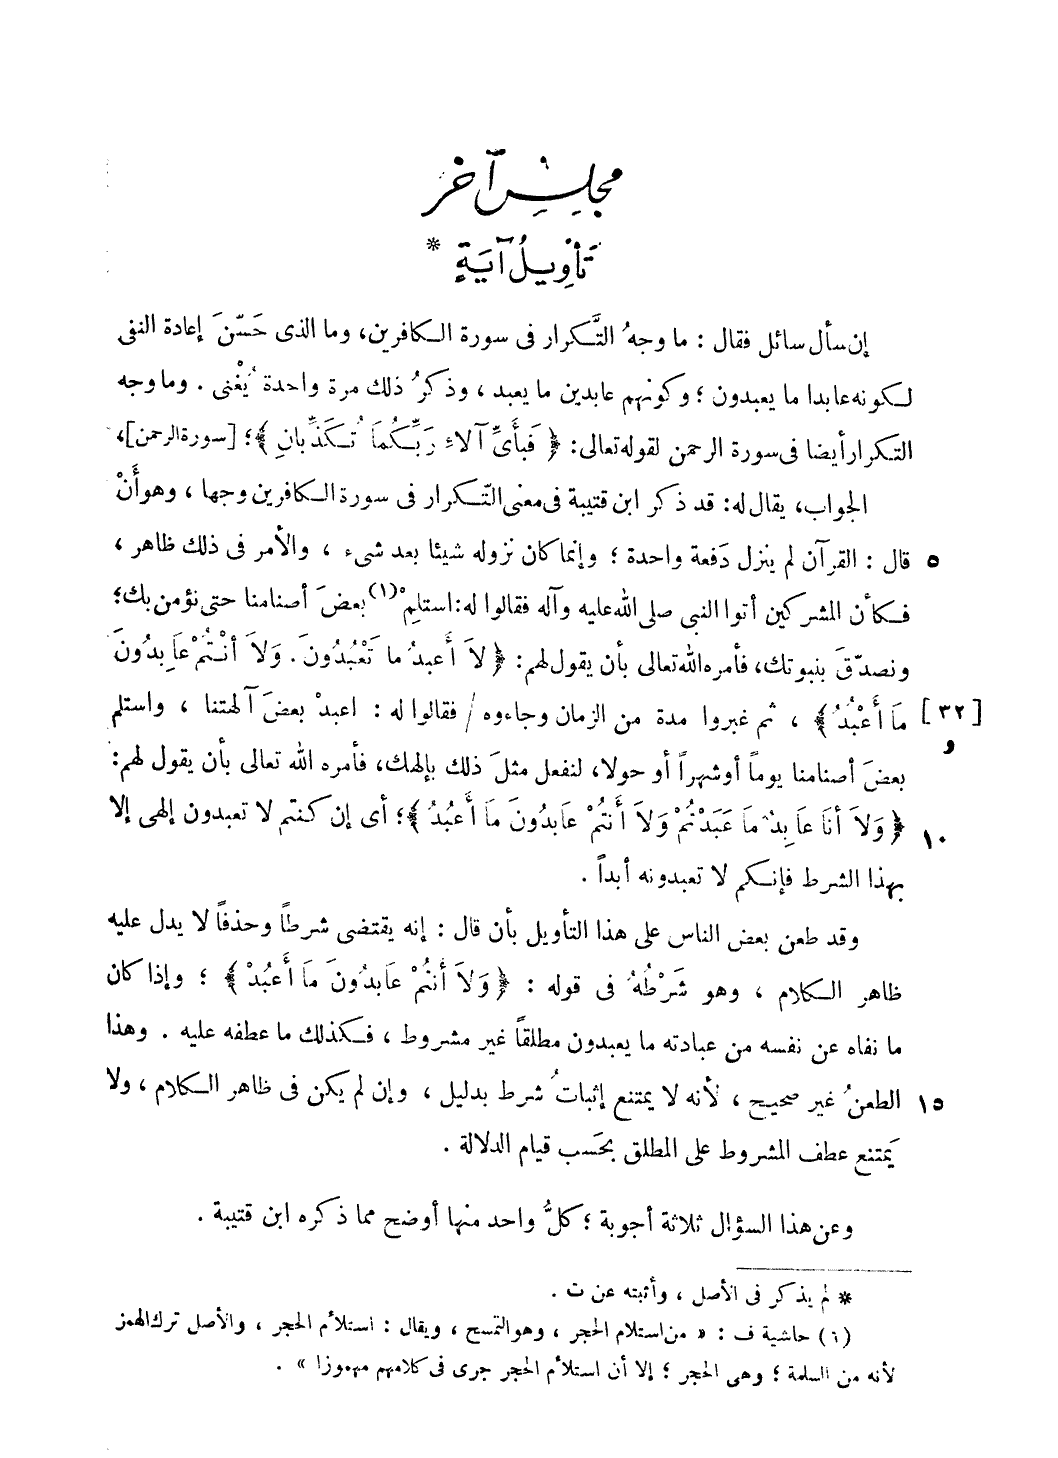 مجلس آخر
تأويل آية *
إن سأل سائل فقال : ما وجهُ التَّكرار فى سورة الكافرين، وما الذى حَسّنَ إعادة النفى
لكونه عابدا ما يعبدون ؛ وكونهم عابدين ما يعبد ، وذكرُ ذلك مرة واحدة يُغْنى . وما وجه
التكرار أيضا فى سورة الرحمن لقوله تعالى: ﴿ فَبأَىِّ آلاءِ رَبِّكُمَا تُكَذِّبانِ ﴾؛ [سورة الرحمن]،
الجواب، يقال له: قد ذكر ابن قتيبة فى معنى التّكرار فى سورة الكافرين وجها ، وهو أَنْ
٥ قال : القرآن لم ينزل دَفعة واحدة ؛ وإنما كان نزوله شيئا بعد شىء ، والأمر فى ذلك ظاهر ،
فكأن المشركين أتوا النبى صلى الله عليه وآله فقالوا له: استلمْ(١) بعضَ أصنامنا حتى نؤمن بك؛
ونصدّقَ بنبوتك، فأمره الله تعالى بأن يقول لهم: ﴿ لاَ أَعبدُ ما تَعْبُدُونَ. وَلاَ أنْتُمْ عَابِدُونَ
[٣٢ و] مَا أَعْبُدُ ﴾ ، ثم غبروا مدة من الزمان وجاءوه / فقالوا له : اعبدْ بعضَ آلهتنا ، واستلم
بعضَ أصنامنا يوماً أو شهراً أو حولا، لنفعل مثلَ ذلك بإلهك، فأمره الله تعالى بأن يقول لهم:
١٠ ﴿ وَلاَ أنَا عَابِدٌ مَا عَبَدْتُمْ وَلاَ أَنتُمْ عَابدُونَ مَا أَعبُدُ ﴾؛ أى إن كنتم لا تعبدون إلهى إلا
بهذا الشرط فإنكم لا تعبدونه أبداً .
وقد طعن بعض الناس على هذا التأويل بأن قال : إنه يقتضى شرطاً وحذفاً لا يدل عليه
ظاهر الكلام ، وهو شَرْطُهُ فى قوله : ﴿ وَلاَ أَنتُمْ عَابدُونَ مَا أَعبُدْ ﴾ ؛ وإذا كان
ما نفاه عن نفسه من عبادته ما يعبدون مطلقاً غير مشروط ، فكذلك ما عطفه عليه . وهذا
١٥ الطعنُ غير صحيح ، لأنه لا يمتنع إثباتُ شرط بدليل ، وإن لم يكن فى ظاهر الكلام ، ولا
يَمتنع عطف المشروط على المطلق بحَسب قيام الدلالة .
وعن هذا السؤال ثلاثة أجوبة ؛ كلُّ واحد منها أوضح مما ذكره ابن قتيبة .
* لم يذكر فى الأصل ، وأثبته عن ت .
(١) حاشية ف : « من استلام الحجر ، وهو التمسح ، ويقال : استلأم الحجر ، والأصل ترك الهمز
لأنه من السلمة ؛ وهى الحجر ؛ إلا أن استلأم الحجر جرى فى كلامهم مهموزا » .